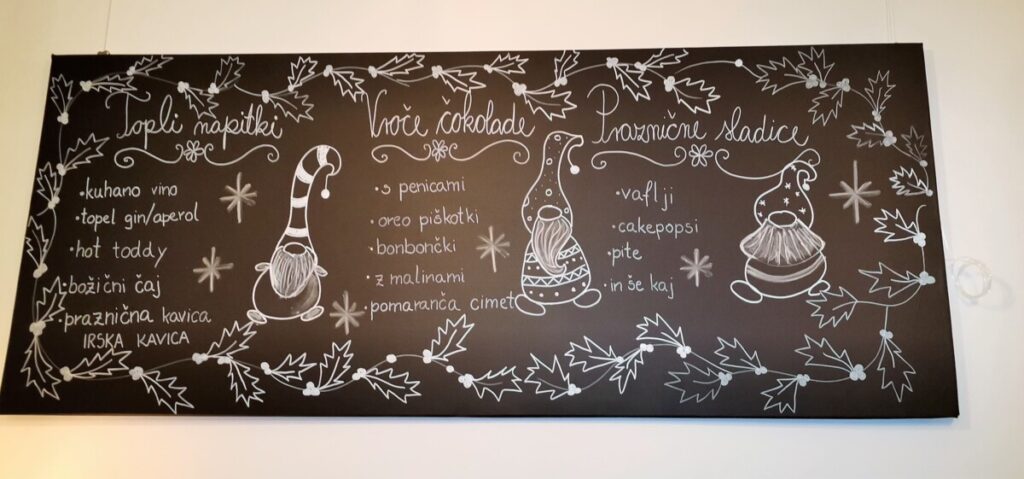 Topli napitki
• kuhano vino
• topel gin/aperol
• hot toddy
• božični čaj
• praznična kavica
IRSKA KAVICA
Vroče čokolade
• s penicami
oreo piškotki
• bonbončki
• z malinami
• pomaranča cimet
Praznične sladice
• vaflji
• cakepopsi
• pite
• in še kaj